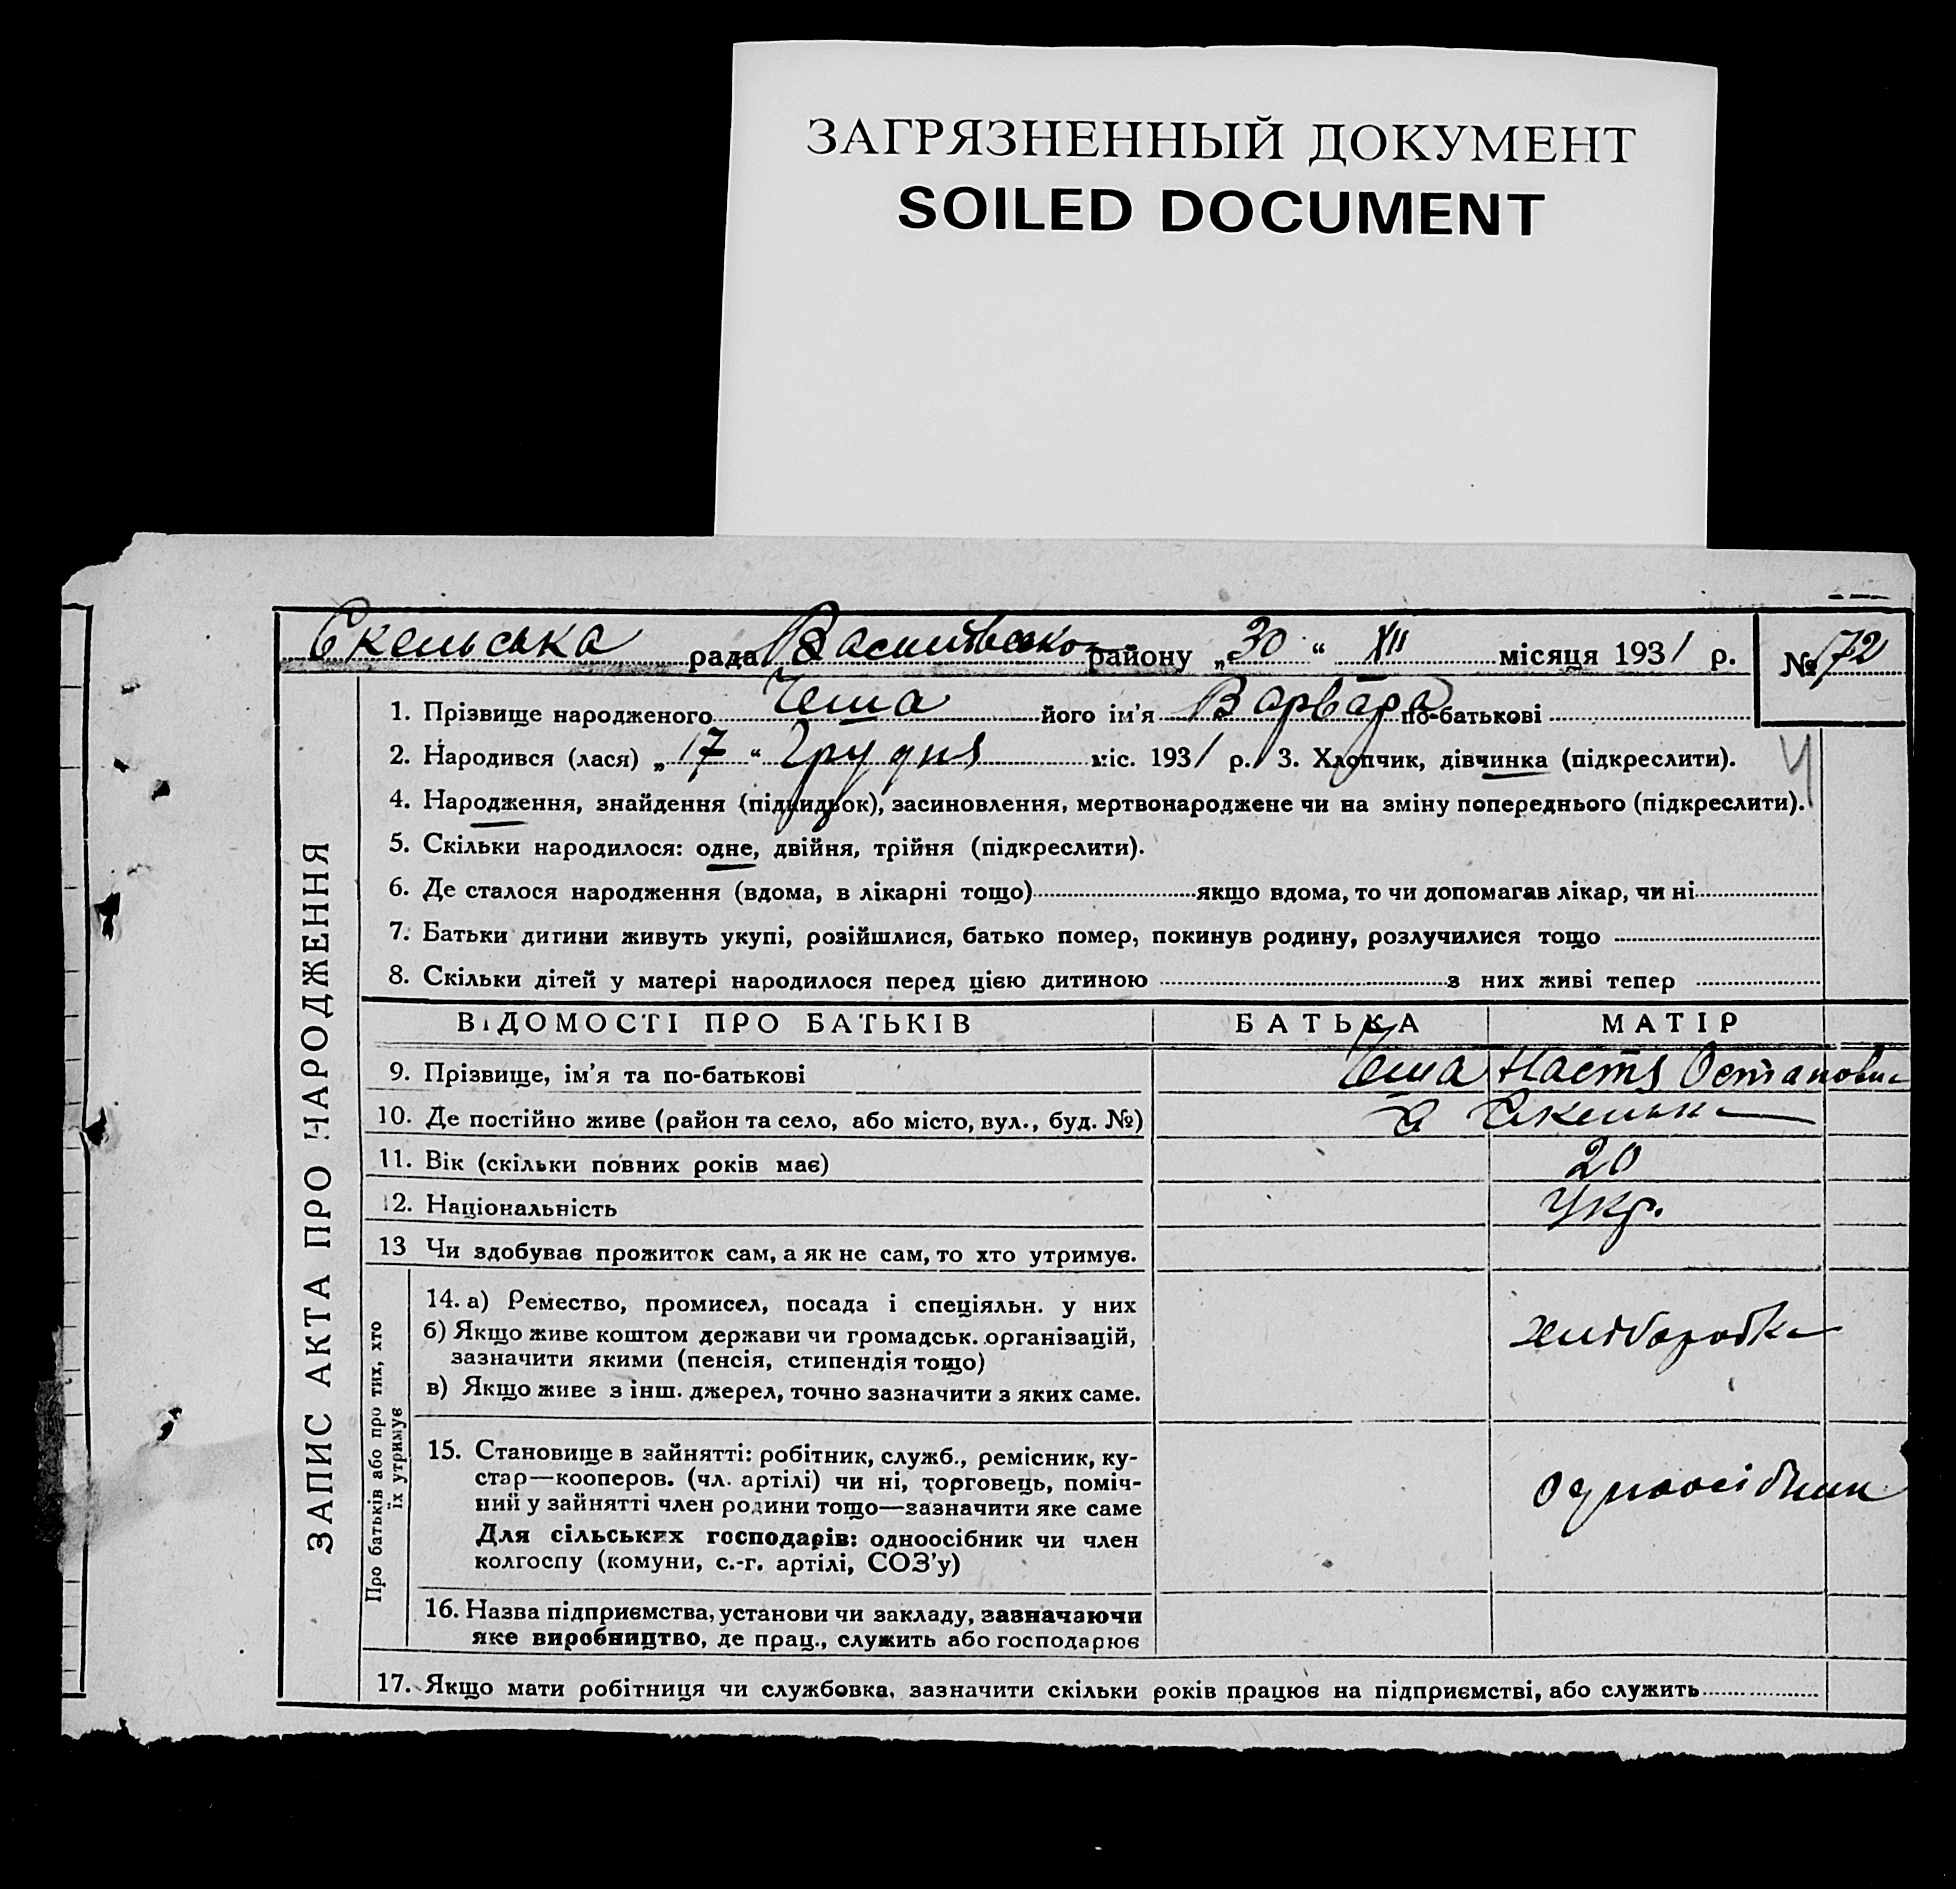 ЗАГРЯЗНЕННЫЙ ДОКУМЕНТ
SOILED DOCUMENT
Скельська рада Василівсько району „30“ XII місяця 1931 р. № 72
1. Прізвище народженого Чеша його ім’я Варвара по-батькові
2. Народився (лася) „17“ Грудня міс. 1931 р. 3. Хлопчик, дівчинка (підкреслити).
4. Народження, знайдення (підкидьок), засиновлення, мертвонароджене чи на зміну попереднього (підкреслити).
5. Скільки народилося: одне, двійня, трійня (підкреслити).
6. Де сталося народження (вдома, в лікарні тощо) якщо вдома, то чи допомагав лікар, чи ні
7. Батьки дитини живуть укупі, розійшлися, батько помер, покинув родину, розлучилися тощо
8. Скільки дітей у матері народилося перед цією дитиною з них живі тепер
ЗАПИС АКТА ПРО НАРОДЖЕННЯ
ВІДОМОСТІ ПРО БАТЬКІВ БАТЬКА МАТІР
9. Прізвище, ім’я та по-батькові Чеша Настя
10. Де постійно живе (район та село, або місто, вул., буд. №) с Скелька
11. Вік (скільки повних років має) 20
12. Національність Укр.
13 Чи здобуває прожиток сам, а як не сам, то хто утримує.
Про батьків або про тих, хто
їх утримує
14. а) Ремество, промисел, посада і спеціяльн. у них
б) Якщо живе коштом держави чи громадськ. організацій,
зазначити якими (пенсія, стипендія тощо)
хліборобка
в) Якщо живе з інш. джерел, точно зазначити з яких саме.
15. Становище в зайнятті: робітник, служб., ремісник, ку-
стар—кооперов. (чл. артілі) чи ні, торговець, поміч-
ний у зайнятті член родини тощо—зазначити яке саме
одноосібник
Для сільських господарів: одноосібник чи член
колгоспу (комуни, с.-г. артілі, СОЗ’у)
16. Назва підприємства, установи чи закладу, зазначаючи
яке виробництво, де прац., служить або господарює
17. Якщо мати робітниця чи службовка, зазначити скільки років працює на підприємстві, або служить